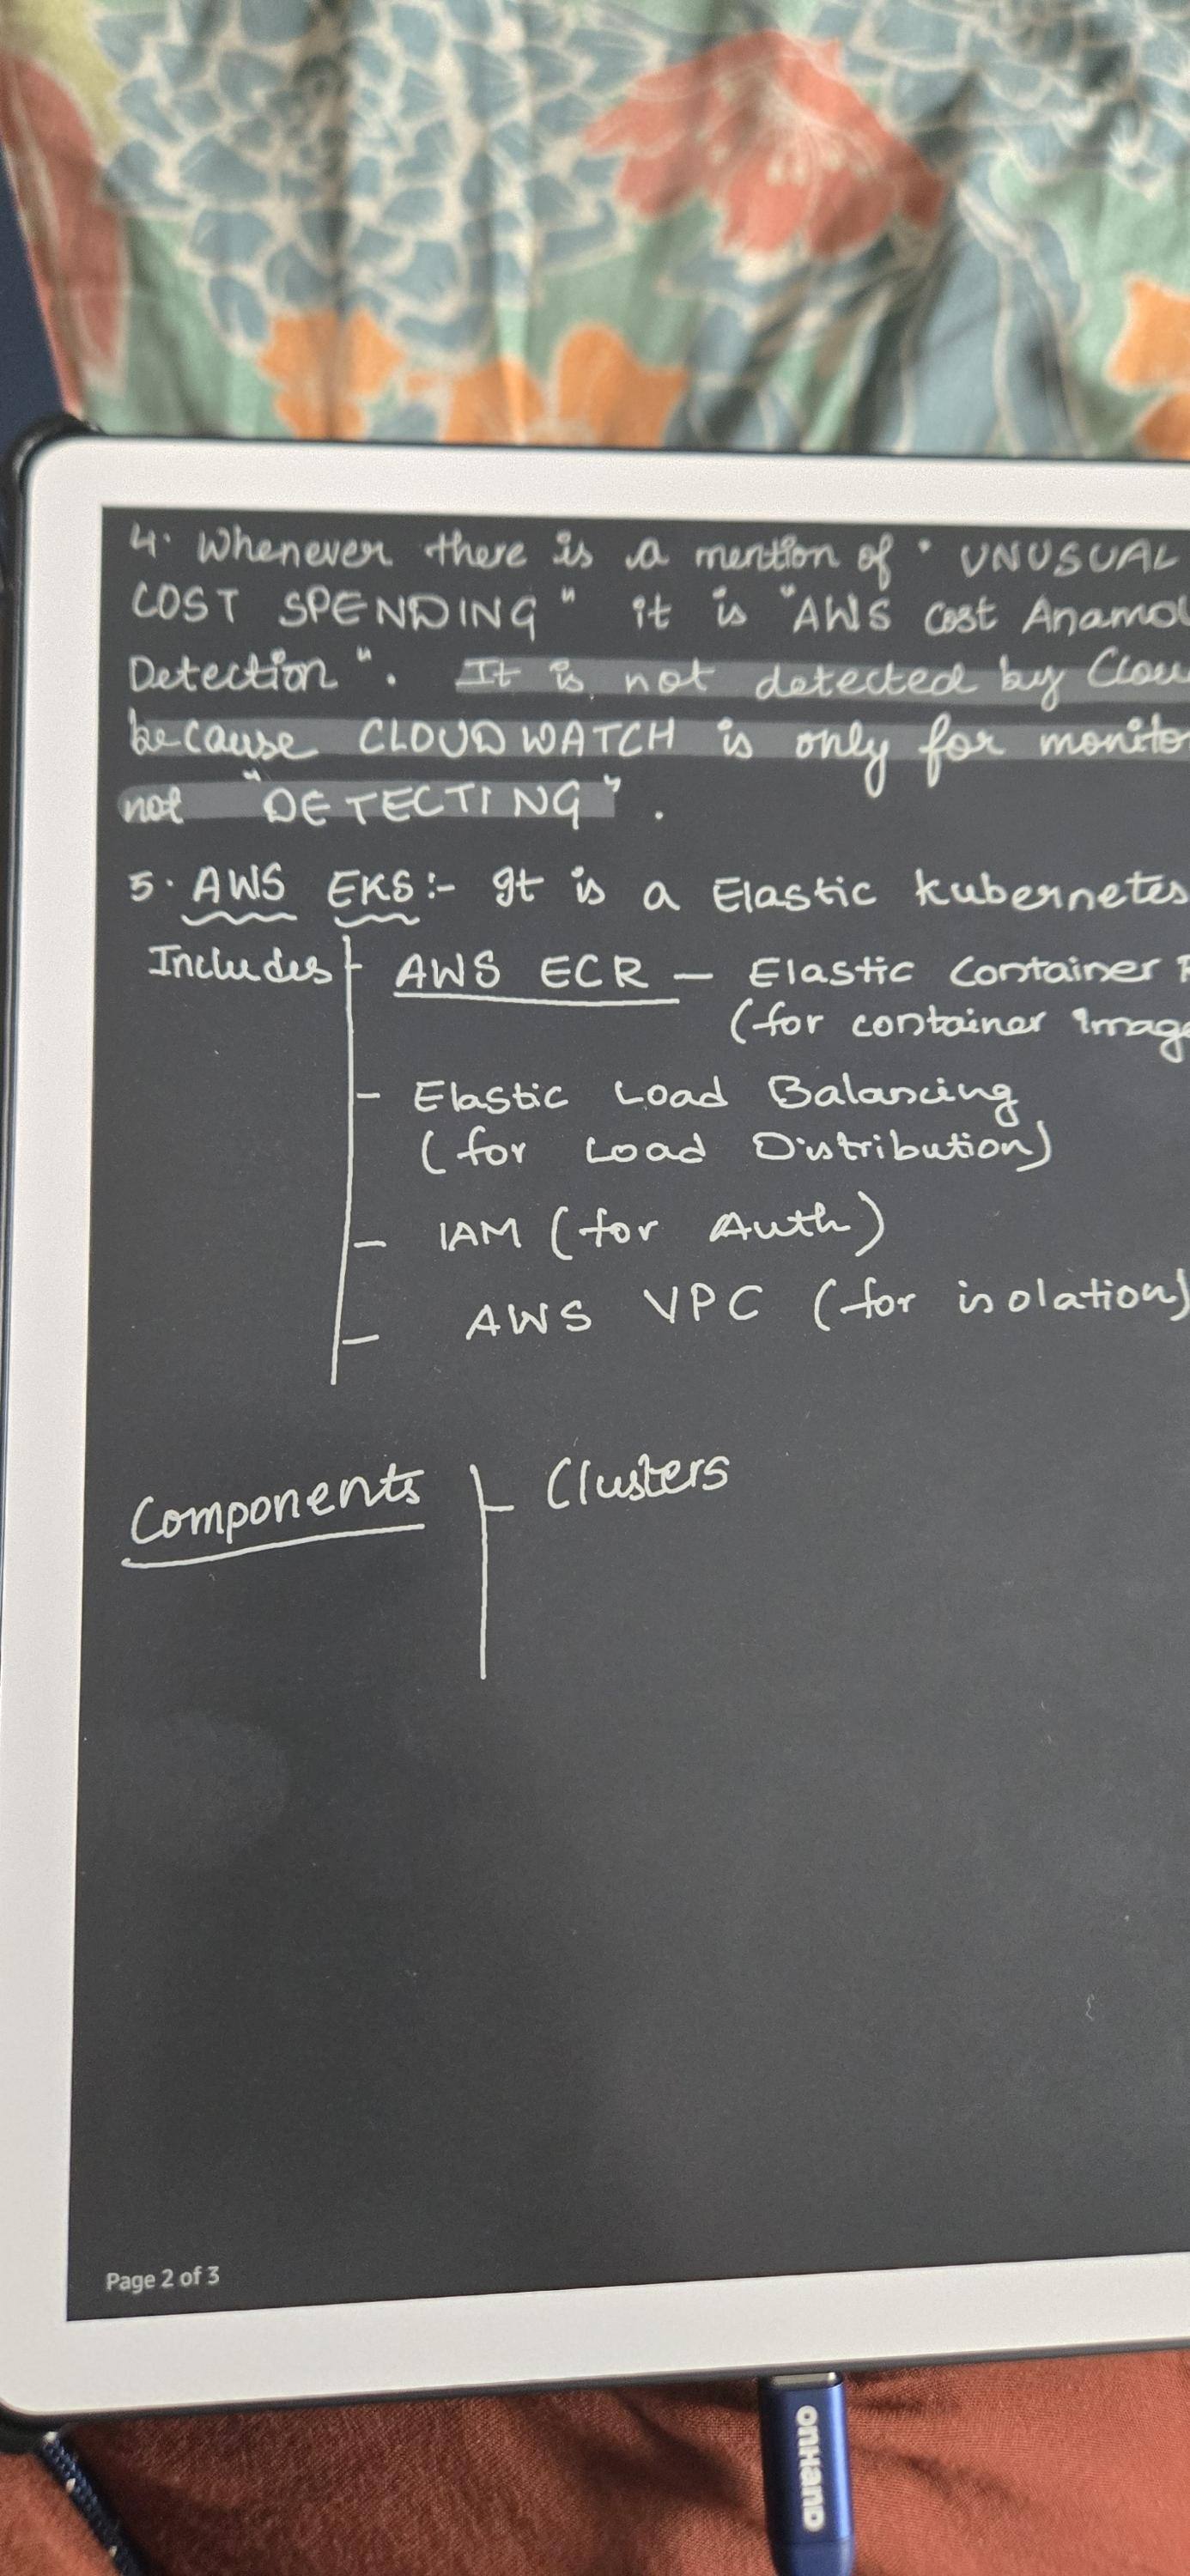 4. Whenever there is a mention of " UNUSUAL
COST SPENDING " it is "AWS Cost Anamol
Detection ". It is not detected by Clou
because CLOUDWATCH is only for monito
not "DETECTING".
5. AWS EKS:- It is a Elastic kubernetes
Includes - AWS ECR - Elastic Container R
(for container Image
- Elastic Load Balancing
(for Load Distribution)
- IAM (for Auth)
- AWS VPC (for isolation)
Components - Clusters
Page 2 of 3
onHand